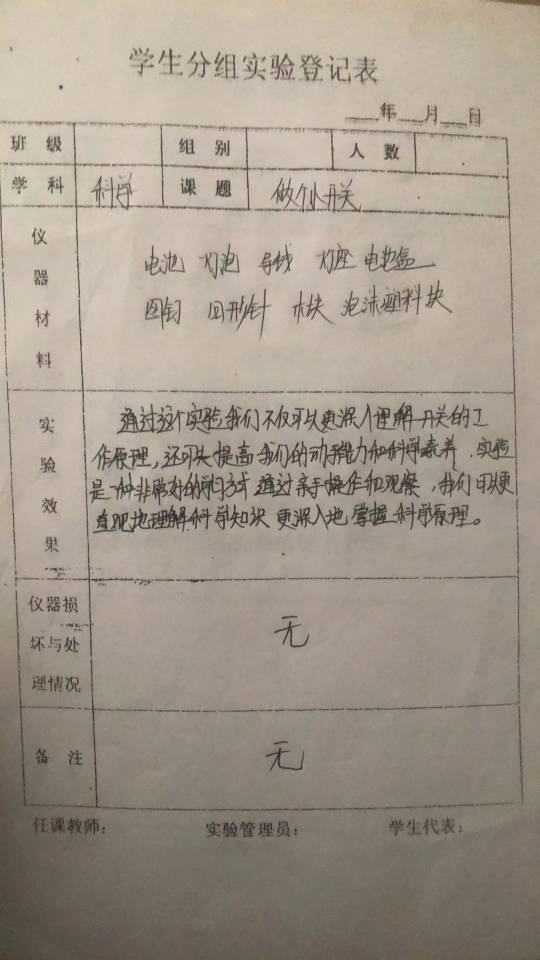 学生分组实验登记表
年 月 日
班级 组别 人数
学科 科学 课题 做个小开关
仪器材料
电池 灯泡 导线 灯座 电池盒
图钉 回形针 木块 泡沫塑料块
实验效果
通过这个实验我们不仅可以更深入理解开关的工
作原理,还可以提高我们的动手能力和科学素养,实验
是一种非常好的学习方式 通过亲手操作和观察,我们可以更
直观地理解科学知识 更深入地 掌握科学原理。
仪器损坏与处理情况
无
备注 无
任课教师: 实验管理员: 学生代表: